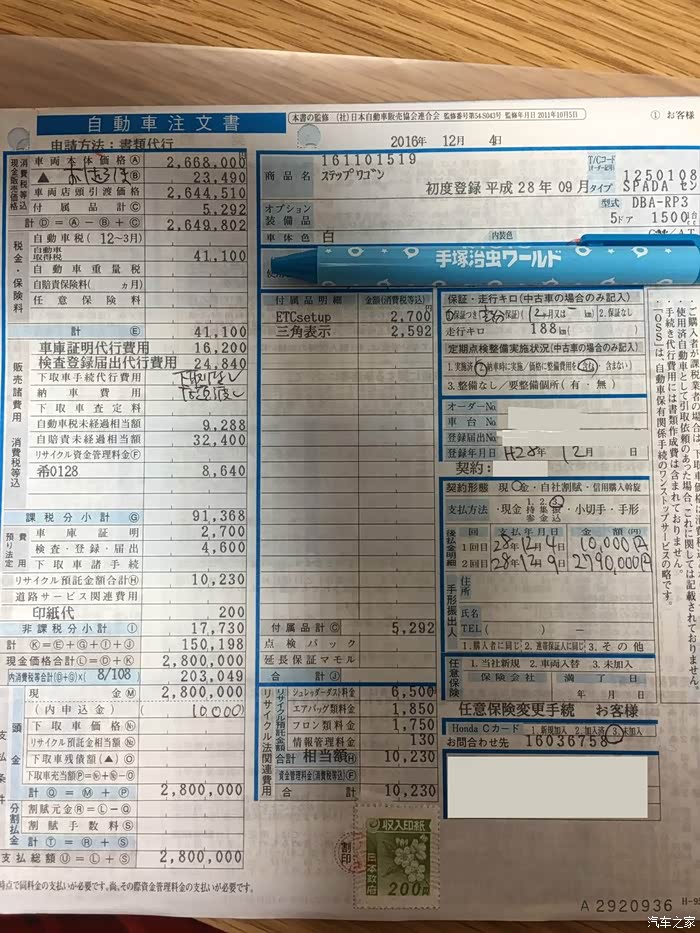 自動車注文書
本書の監修 (社)日本自動車販売協会連合会 監修番号第54S043号 監修年月日2011年10月5日
① お客様
申請方法：書類代行
2016年 12月 4日
現金販売価格
消費税等込
車両本体価格Ⓐ 2,668,000
▲ Ⓑ 23,490
車両店頭引渡価格 2,644,510
付属品計Ⓒ 5,292
計Ⓓ=Ⓐ-Ⓑ+Ⓒ 2,649,802
税金・保険料
自動車税 (12～3月)
自動車取得税 41,100
自動車重量税
自賠責保険料( ヵ月)
任意保険料
計Ⓔ 41,100
販売諸費用
消費税等込
車庫証明代行費用 16,200
検査登録届出代行費用 24,840
下取車手続代行費用 下取なし
納車費用
下取車査定料
自動車税未経過相当額 9,288
自賠責未経過相当額 32,400
リサイクル資金管理料金Ⓕ
希0128 8,640
課税分小計Ⓖ 91,368
預り法定費用
車庫証明 2,700
検査・登録・届出 4,600
下取車諸手続
リサイクル預託金額合計Ⓗ 10,230
道路サービス関連費用
印紙代 200
非課税分小計Ⓘ 17,730
計Ⓚ=Ⓔ+Ⓖ+Ⓘ+Ⓙ 150,198
現金価格合計Ⓛ=Ⓓ+Ⓚ 2,800,000
内消費税等合計(Ⓓ+Ⓖ)× 8/108 203,049
支払条件
頭金
現金Ⓜ 2,800,000
(内申込金) (10,000)
下取車価格Ⓝ
リサイクル預託金相当額Ⓝ
下取車残債額(▲)Ⓞ
下取車充当額Ⓟ=Ⓝ+Ⓝ-Ⓞ
計Ⓠ=Ⓜ+Ⓟ 2,800,000
分割払金
割賦元金Ⓡ=Ⓛ-Ⓠ
割賦手数料Ⓢ
計Ⓣ=Ⓡ+Ⓢ
支払総額Ⓤ=Ⓛ+Ⓢ 2,800,000
時点で同料金の支払いが必要です。尚、その際資金管理料金の支払いが必要です。
商品名
161101519
ステップワゴン
初度登録 平成28年09月
T/Cコード
1250108
タイプ SPADA セン
オプション装備品
型式 DBA-RP3
5ドア 1500
車体色 白
内装色
手塚治虫ワールド
付属品明細 金額(消費税等込)
ETCsetup 2,700
三角表示 2,592
付属品計Ⓒ 5,292
点検パック
延長保証マモル
合計Ⓙ
リサイクル法関連費用
リサイクル預託金額
シュレッダーダスト料金 6,500
エアバッグ類料金 1,850
フロン類料金 1,750
情報管理料金 130
合計 相当額Ⓗ 10,230
資金管理料金(消費税等込)Ⓕ
合計 10,230
収入印紙
日本政府
200円
割印
保証・走行キロ(中古車の場合のみ記入)
1.保証つき 2.保証なし
走行キロ 188㎞
定期点検整備実施状況(中古車の場合のみ記入)
1.実施済 2.納車時に実施／価格に整備費用を(含む・含まない)
3.整備なし／要整備個所(有・無)
オーダーNo.
車台No.
登録届出No.
登録年月日 H28年 12月 日
契約：
契約形態 現金・自社割賦・信用購入斡旋
支払方法 ・現金 1.持参 2.集金 3.振込 ・小切手・手形
後払金明細 支払年月日 金額(円)
1回目 28年12月4日 10,000円
2回目 28年12月9日 2790,000円
手形振出人
住所
氏名
TEL( ) -
1.購入者に同じ 2.連帯保証人に同じ 3.その他
任意保険
1.当社新規 2.車両入替 3.未加入
保険会社 満了日
年 月 日
任意保険変更手続 お客様
Honda Cカード 1.新規加入 2.加入済 3.未加入
お問合わせ先 16036758
使用済自動車として引取依頼のあった場合、下取車価格は
手続き代行費用には書類作成費は含まれておりません。
「OSS」は、自動車保有関係手続のワンストップサービスの略です。
A2920936
H-95
汽车之家